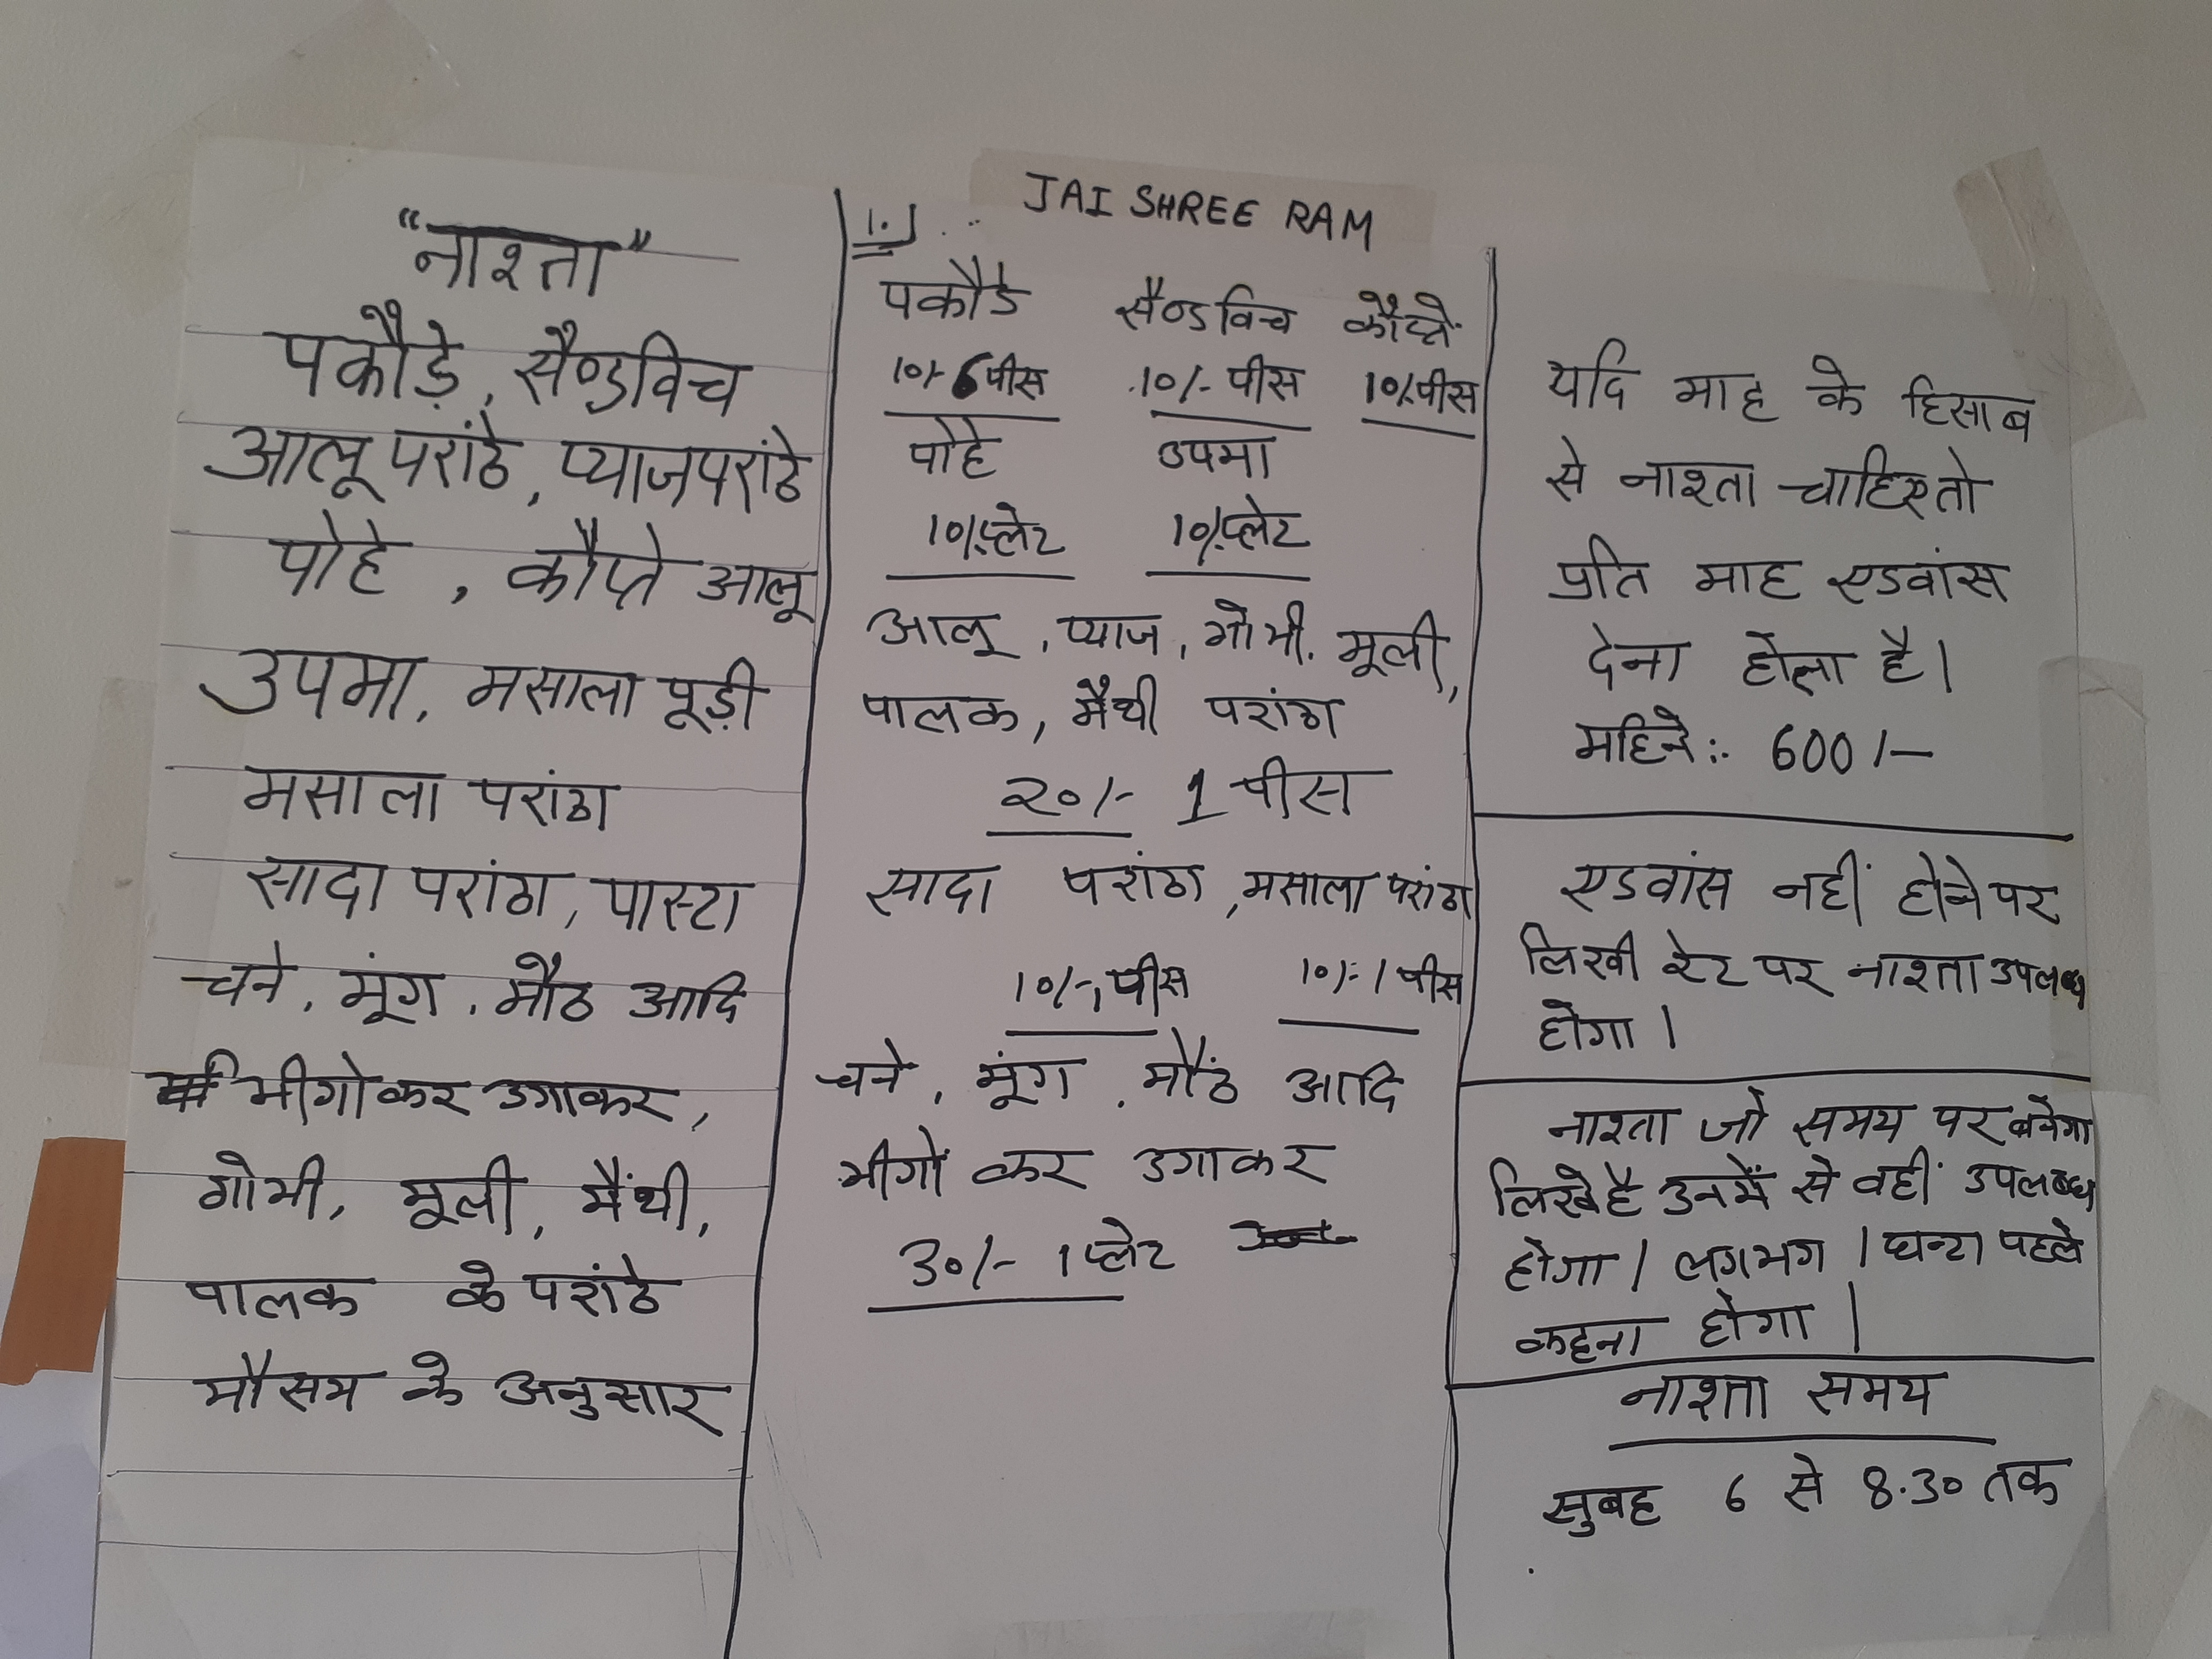 "नाश्ता"
पकौड़े, सैण्डविच
आलू परांठे, प्याजपरांठे
पोहे, कौप्ते आलू
उपमा, मसाला पूड़ी
मसाला परांठा
सादा परांठा, पास्टा
चने, मूंग, मौठ आदि
भीगोकर उगाकर,
गोभी, मूली, मैंथी,
पालक के परांठे
मौसम के अनुसार
JAI SHREE RAM
1.
पकौडे सैण्डविच कौप्ते
10/- 6 पीस 10/- पीस 10/- पीस
पोहे उपमा
10/- प्लेट 10/- प्लेट
आलू, प्याज, गोभी, मूली,
पालक, मैथी परांठा
20/- 1 पीस
सादा परांठा, मसाला परांठा
10/-1 पीस 10/-1 पीस
चने, मूंग, मौंठ आदि
भीगों कर उगाकर
30/- 1 प्लेट
यदि माह के हिसाब
से नाश्ता चाहिए तो
प्रति माह एडवांस
देना होता है।
महिने:- 600/-
एडवांस नहीं होने पर
लिखी रेट पर नाश्ता उपलब्ध
होगा।
नाश्ता जो समय पर बनेगा
लिखे है उनमें से वहीं उपलब्ध
होगा। लगभग 1 घन्टा पहले
कहना होगा।
नाश्ता समय
सुबह 6 से 8.30 तक